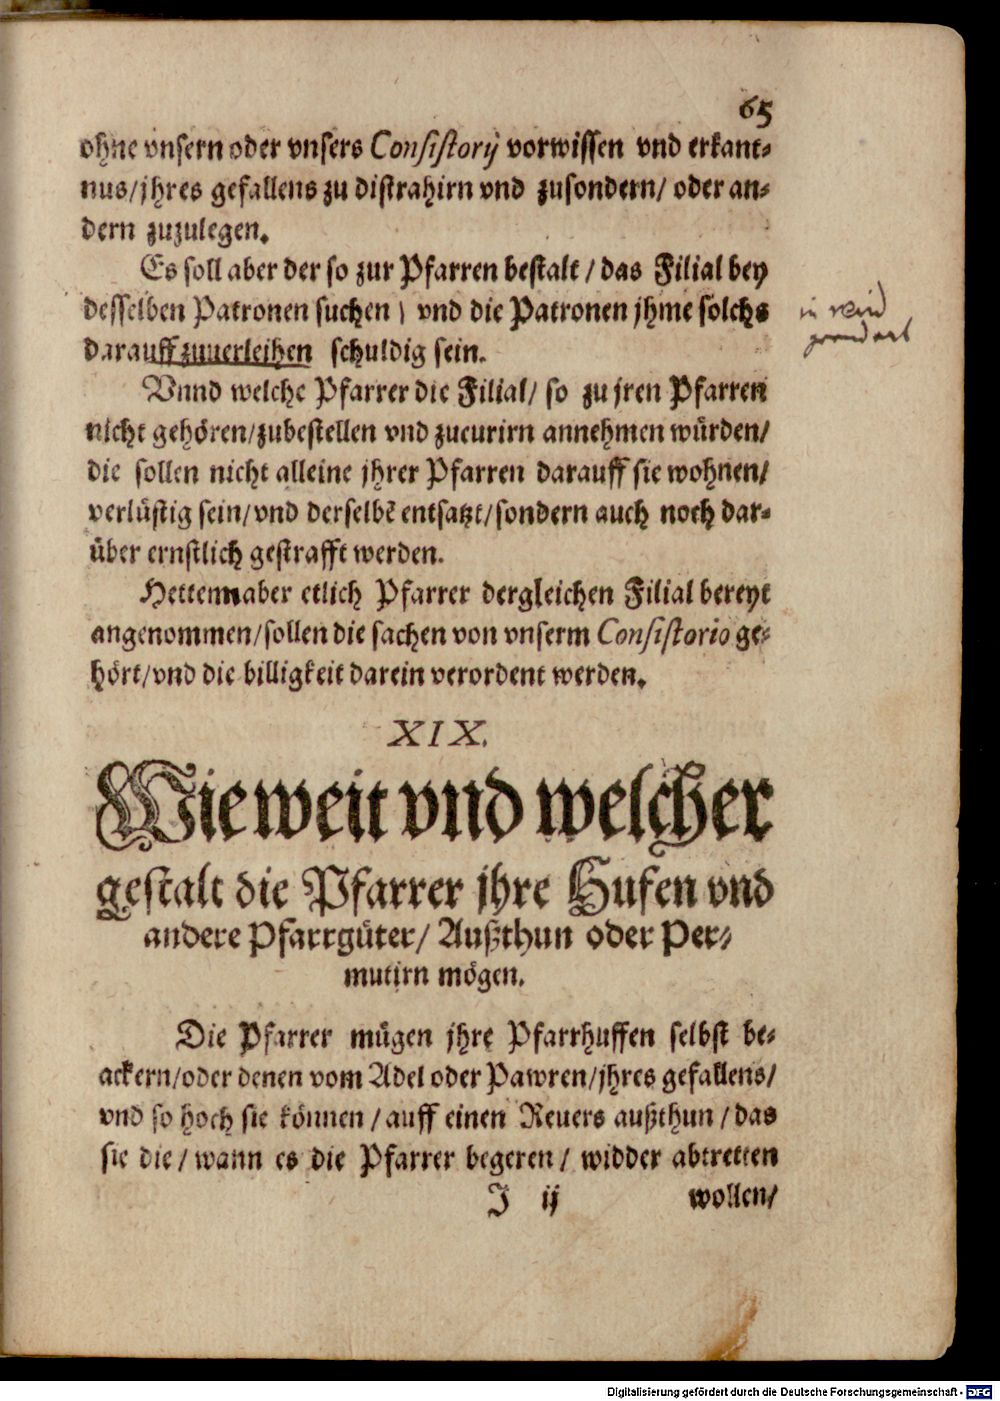 65
ohne vnsern oder vnsers Consistorij vorwissen vnd erkant-
nus/jhres gefallens zu distrahirn vnd zusondern/ oder an-
dern zuzulegen.
Es soll aber der so zur Pfarren bestalt / das Filial bey
desselben Patronen suchen / vnd die Patronen jhme solchs
darauff zuuerleihen schuldig sein.
Vnnd welche Pfarrer die Filial/ so zu jren Pfarren
nicht gehören/zubestellen vnd zucurirn annehmen würden/
die sollen nicht alleine jhrer Pfarren darauff sie wohnen/
verlüstig sein/vnd derselbē entsatzt/sondern auch noch dar-
über ernstlich gestrafft werden.
Hettenn aber etlich Pfarrer dergleichen Filial bereyt
angenommen/sollen die sachen von vnserm Consistorio ge-
hört/vnd die billigkeit darein verordent werden.
XIX.
Wie weit vnd welcher
gestalt die Pfarrer jhre Hufen vnd
andere Pfarrgüter/ Außthun oder Per-
mutirn mögen.
Die Pfarrer mügen jhre Pfarrhuffen selbst be-
ackern/oder denen vom Adel oder Pawren/jhres gefallens/
vnd so hoch sie können / auff einen Reuers außthun / das
sie die / wann es die Pfarrer begeren / widder abtretten
J ij wollen/
Digitalisierung gefördert durch die Deutsche Forschungsgemeinschaft - DFG